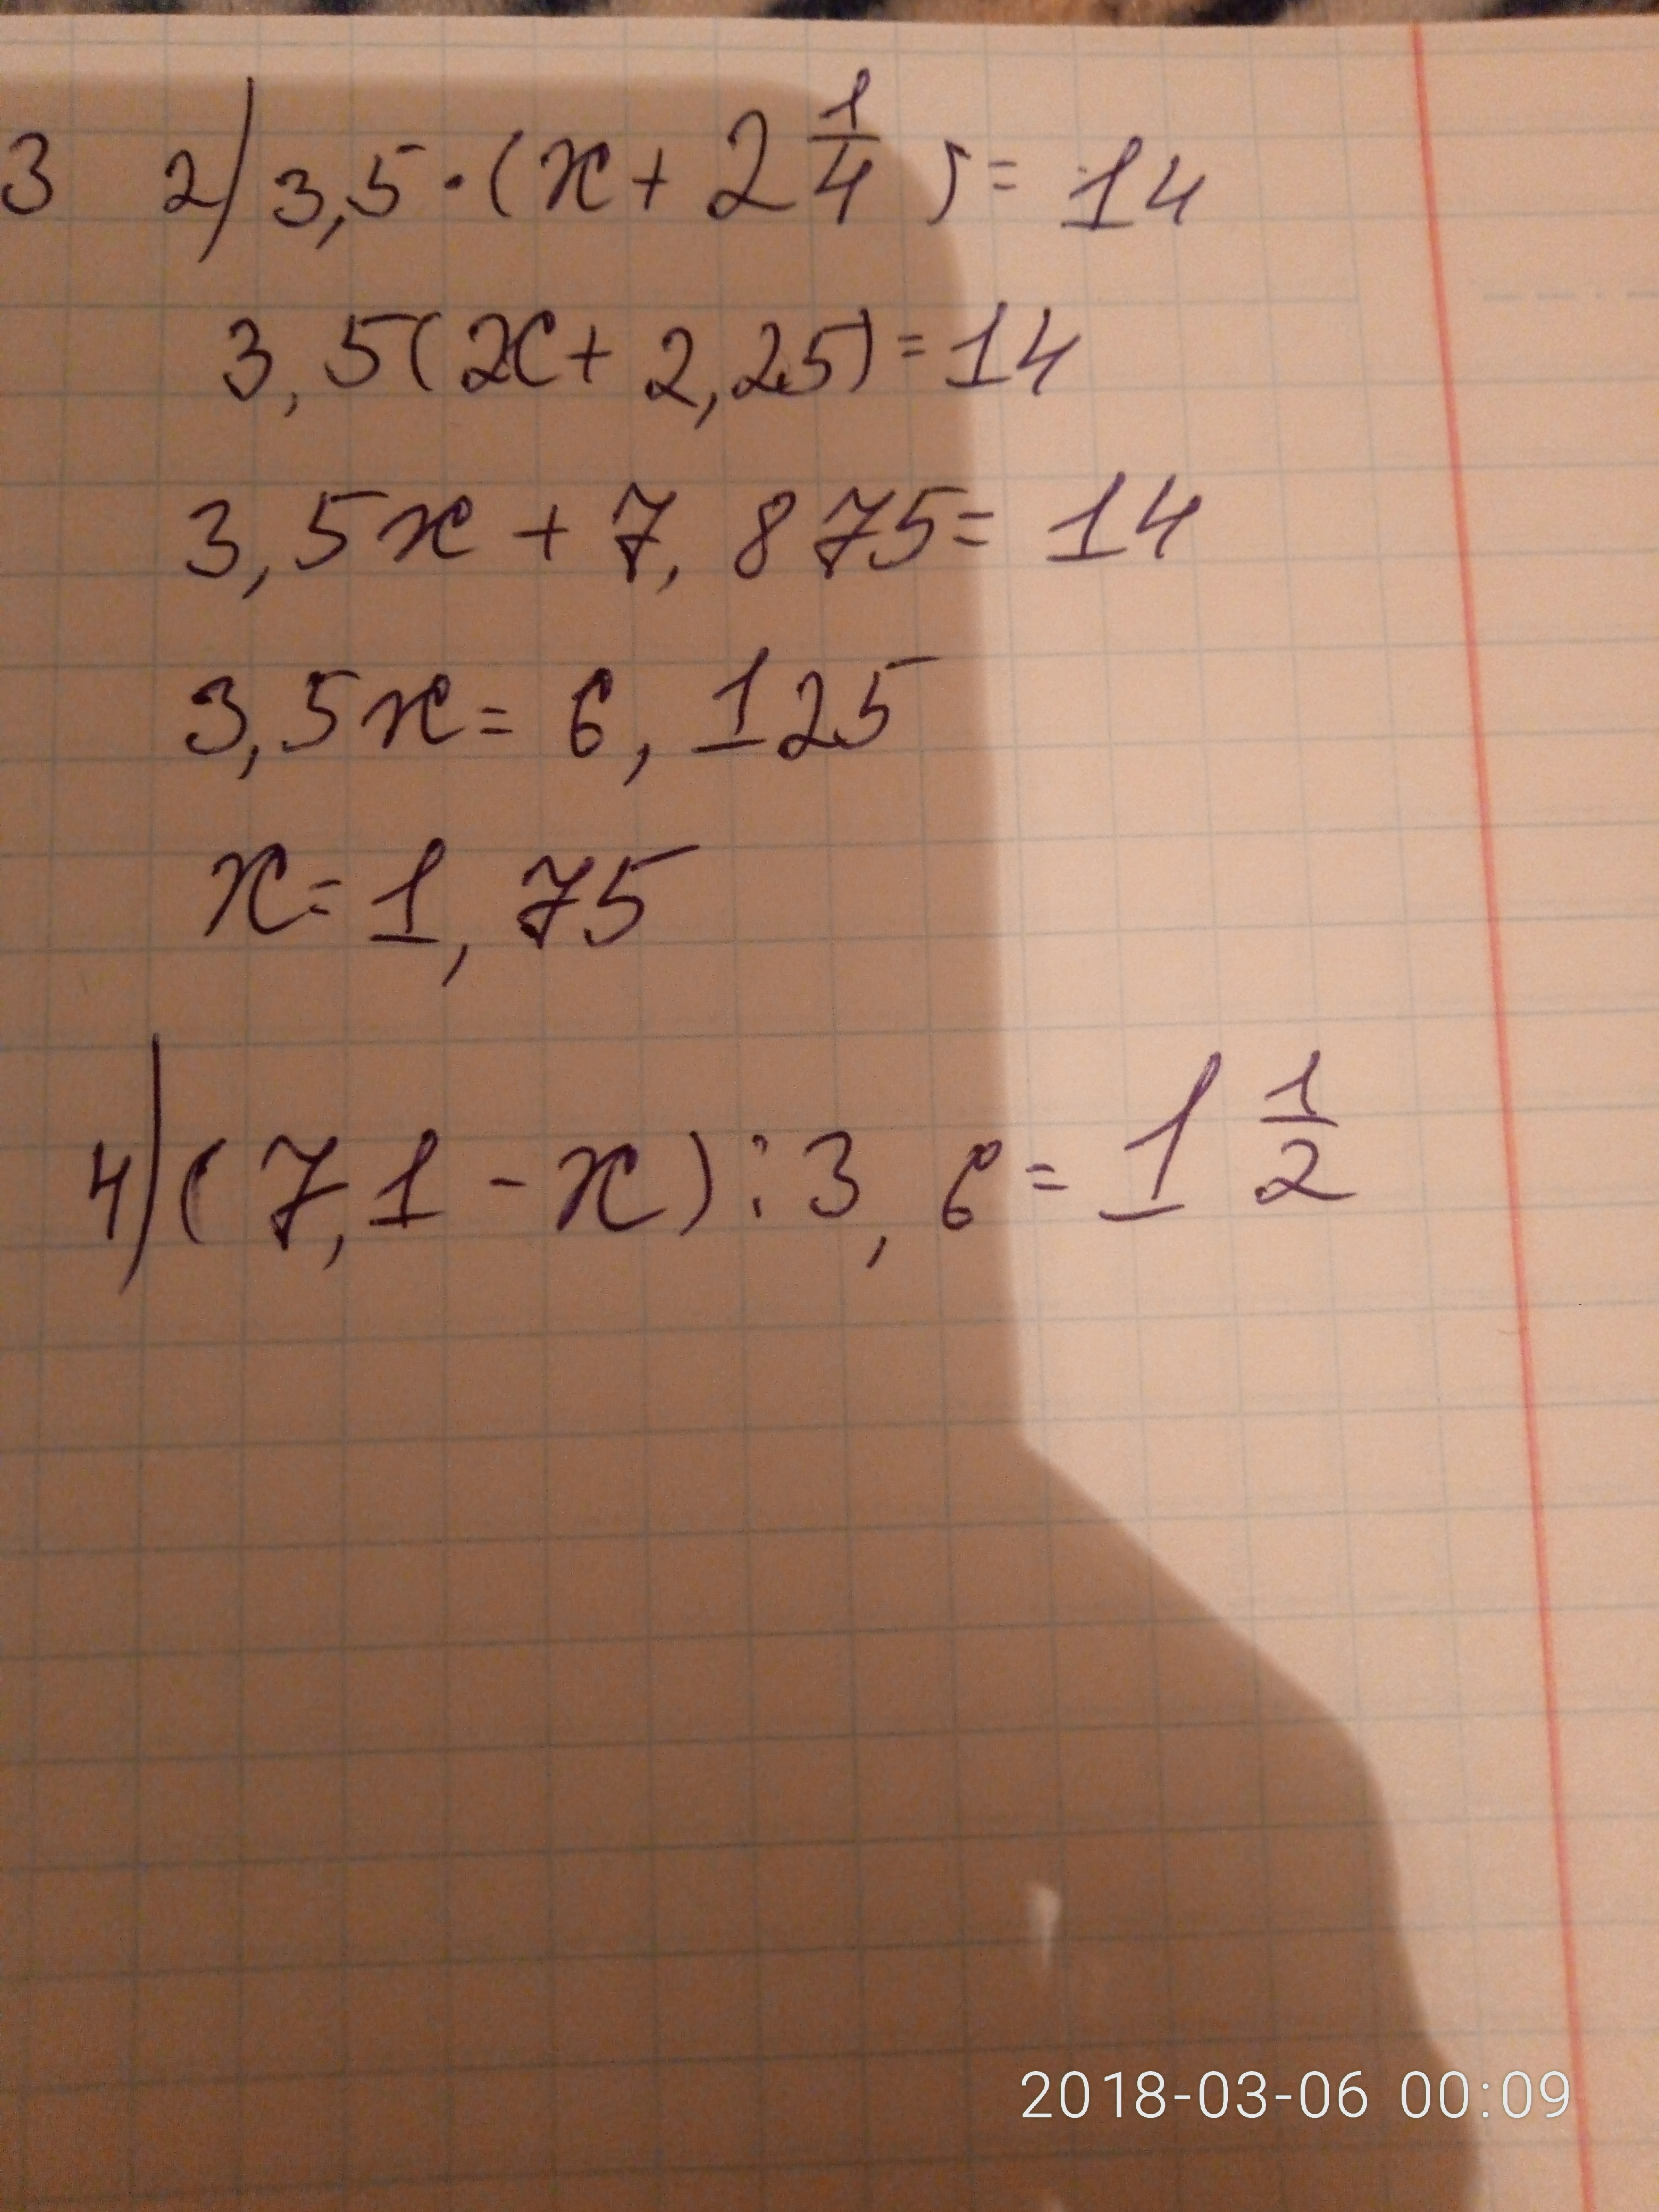 3 2) 3,5·(x+2 1/4)=14
3,5(x+2,25)=14
3,5x+7,875=14
3,5x=6,125
x=1,75
4) (7,1-x):3,6=1 1/2
2018-03-06 00:09